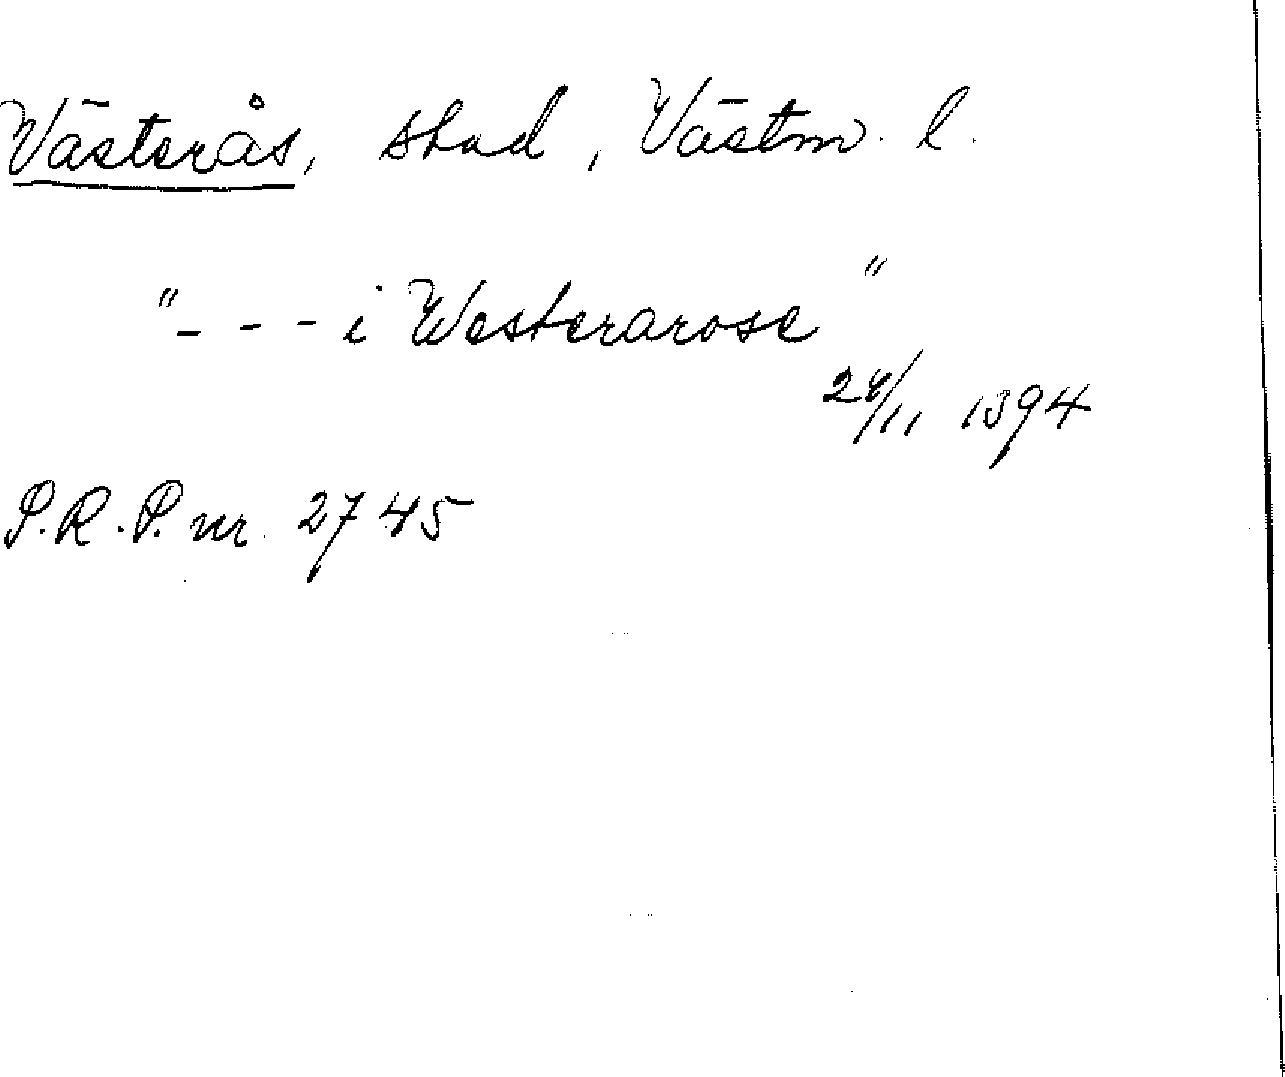 Västerås, stad, Västm. l.
"- - - i Westerarose"
/11 1394
S.R.P. nr. 2745